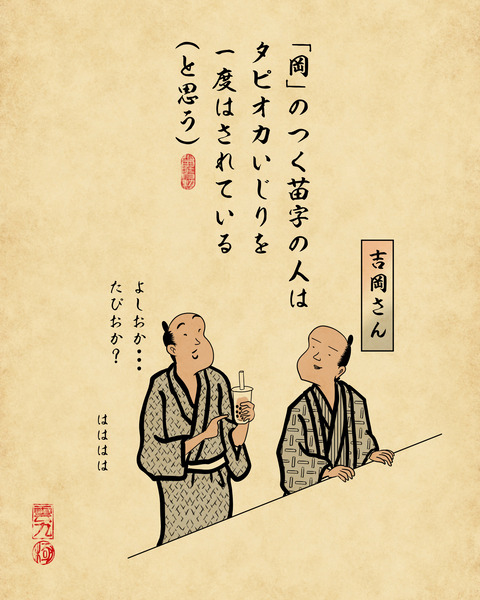 「岡」のつく苗字の人は
タピオカいじりを
一度はされている
（と思う）
吉岡さん
よしおか・・・
たぴおか？
はははは